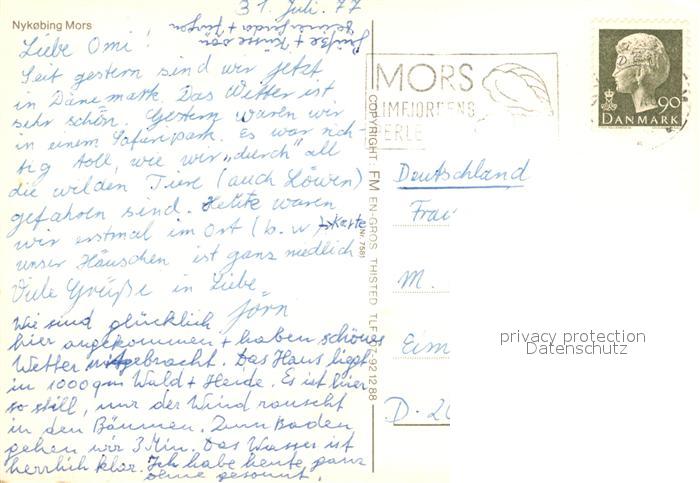 Nykøbing Mors
31. Juli. 77
Liebe Omi!
Seit gestern sind wir jetzt
in Dänemark. Das Wetter ist
sehr schön. Gestern waren wir
in einem Safaripark. Es war rich-
tig toll, wie wir „durch" all
die wilden Tiere (auch Löwen)
gefahren sind. Heute waren
wir erstmal im Ort (b. w. Karte
unser Häuschen ist ganz niedlich
Viele Grüße in Liebe
Jörn
Wir sind glücklich
hier angekommen + haben schönes
Wetter mitgebracht. Das Haus liegt
in 1000 qm Wald + Heide. Es ist hier
so still, nur der Wind rauscht
in den Bäumen. Zum Baden
gehen wir 3 Min. Das Wasser ist
herrlich klar. Ich habe heute ganz
ohne gesonnt.
Grüße + Küsse von
COPYRIGHT: FM EN-GROS THISTED TLF. 07-92 12 88
Nr. 7581
MORS
LIMFJORDENS
PERLE
90
DANMARK
Deutschland
Frau
M.
Eim
D-20
privacy protection
Datenschutz